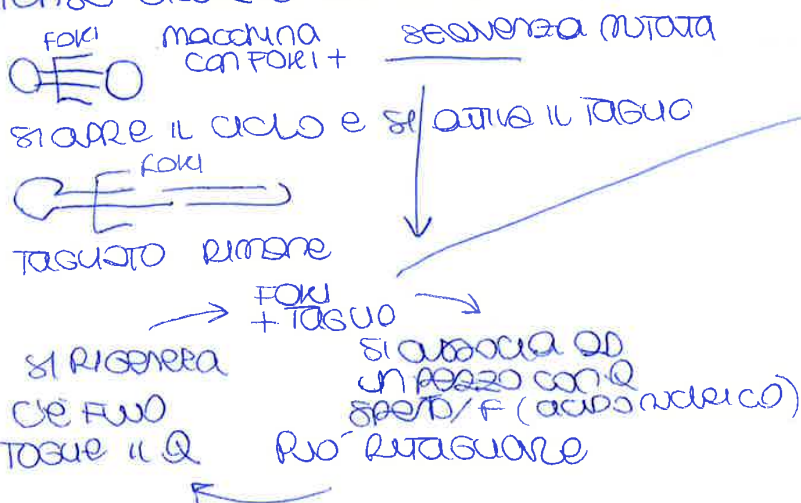 FOKI
macchina
con FOKI +
sequenza mutata
si apre il ciclo e si attiva il taglio
FOKI
tagliato rimane
FOKI
+ taglio
si rigenera
c'è fluo
toglie il Q
si associa ad
un pezzo con Q
spento/F (acido nucleico)
può ritagliare